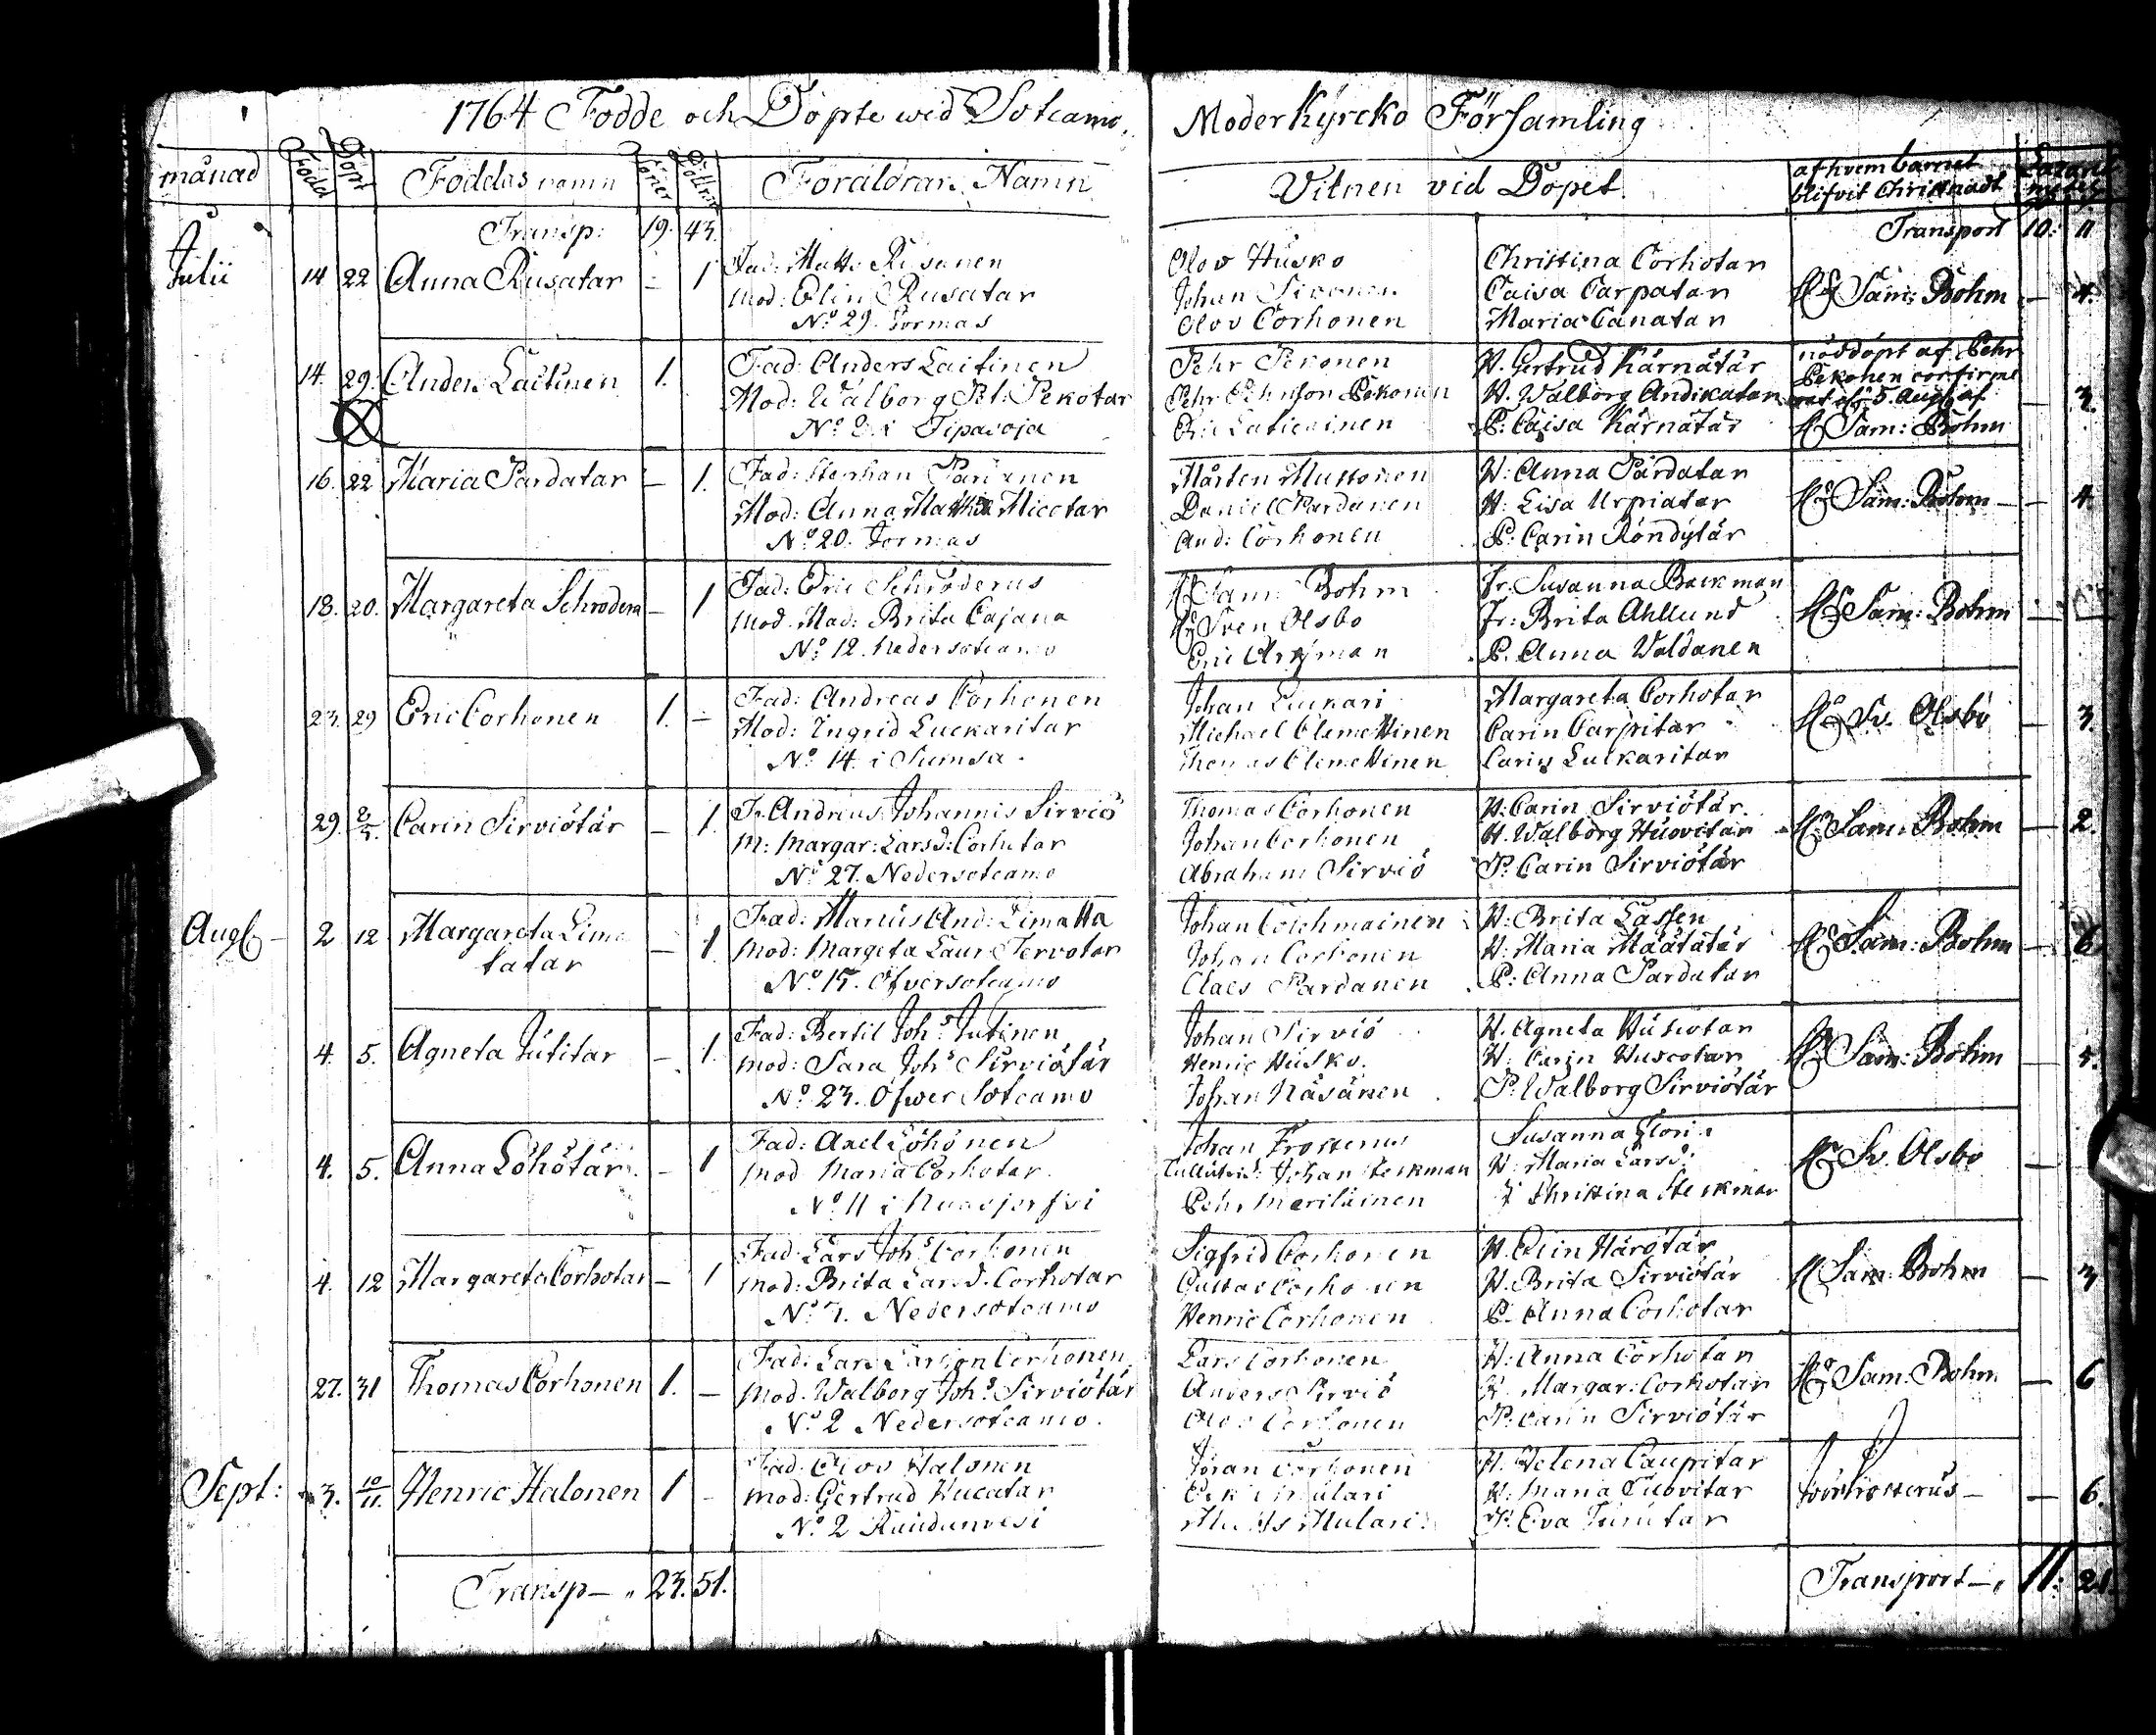 1764 Födde och Döpte wed Sotcamo, Moder Kyrcko Församling
månad Född Döpt Föddas namn Söner Döttrar Föräldrar. Namn Vitnen vid Döpet. af hvem barnet
blifvit Christnadt
Transp: 19. 43. Transport 10: 11
Julii 14 22 Anna Rusatar – 1 Fad: Matts Rusanen Olov Husko Christina Corhotar
Mod: Elin Rusatar Johan Sivonen Caisa Carpatar Sam: Bohm – 4.
No 29. Jormas Olov Corhonen Maria Canatar
14. 29. Anders Laitinen 1. Fad: Anders Laitinen Pehr Pekonen H. Gertrud Kärnätär nöddöpt af Pehr
Mod: Walborg Pet: Pekotar Pehr Pehrsson Pekonen H. Walborg Andikatar Pekonen confirme
No 2 i Tipasoja Eric P: Caisa Kärnätär Sam: Bohm – 3.
16. 22 Maria Pardatar – 1. Fad: Stephan Pardanen Mårten Mustonen H: Anna Pardatar
Mod: Anna Micotar Daniel Pardanen H: Lisa Urpiatar Sam: Bohm – 4.
No 20. Jormas And: Corhonen P: Carin Röndytär
18. 20. Margareta Schrodera – 1 Fad: Eric Schroderus Sam: Bohm Jr. Susanna Backman
Mod. Mad: Brita Cajana Sven Olsbo Jr: Brita Ahllund Sam: Bohm
No 12. Nedersotcamo Eric P. Anna Waldanen
23. 29 Eric Corhonen 1. – Fad: Andreas Corhonen Johan Luckari Margareta Corhotar
Mod: Ingrid Luckaritar Michael Clemettinen Carin Carpitar Sv. Olsbo – 3.
No 14 i Sumsa. Thomas Clemettinen Carin Luckaritar
29. Carin Sirviötär – 1. F: Andreas Johannis Sirviö Thomas Corhonen H: Carin Sirviötär.
M: Margar: Larsd: Corhotar Johan Corhonen H. Walborg Huovitar Sam: Bohm – 2.
No 27. Nedersotcamo Abraham Sirviö P: Carin Sirviötär
Aug 2 12 Margareta Lima- Fad: Marcus And: Limatta Johan H: Brita Lassen
tatar – 1. Mod: Margeta Laur: Tervotar Johan Corhonen H: Maria Määtätär Sam: Bohm – 6.
No 15. Öfversotcamo Claes Pardanen P: Anna Pardatar
4. 5. Agneta Jutitar – 1. Fad: Bertil Johs Jutinen Johan Sirviö H. Agneta Huscotar
Mod: Sara Johs Sirviötär Henric Husko. H: Carin Huscotar Sam: Bohm
No 23. Öfwer Sotcamo Johan Näsänen P: Walborg Sirviötär
4. 5. Anna Löhötär – 1 Fad: Axel Löhönen Johan Frosterus Susanna
Mod Maria Corhotar. Johan Steckman H: Maria Larsd: Sv. Olsbo –
No 11 i Nuasjerfvi Pehr Meriläinen Christina Steckman
4. 12 Margareta Corhotar – 1 Fad: Lars Johs Corhonen Sigfrid Corhonen H. Elin Härötär
Mod: Brita Larsd. Corhotar Gustav Corhonen H. Brita Sirviötär Sam: Bohm – 3
No 3. Nedersotcamo Henric Corhonen P. Anna Corhotar
27. 31 Thomas Corhonen 1. – Fad: Lars Larsson Corhonen Lars Corhonen H: Anna Corhotar
Mod. Walborg Johs Sirviötär Anders Sirviö H. Margar: Corhotar Sam: Bohm – 6
No 2 Nedersotcamo. Olov Corhonen P: Carin Sirviötär
Sept: 3. 10/11. Henric Halonen 1 – Fad: Olov Halonen Johan Corhonen H. Helena Caupitar
Mod: Gertrud Hucatar Mulari H: Maria Cuovitar – 6.
No 2 Matts Mulari P. Eva
Transp– 23. 51. Transport– 11: 21